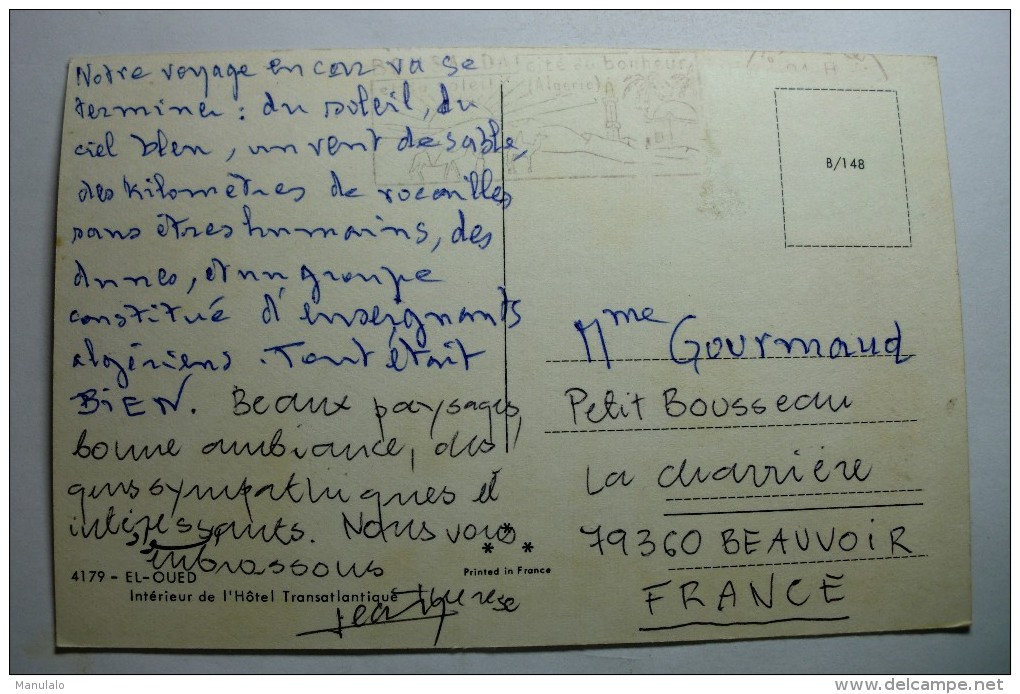 Notre voyage en car va se
terminer : du soleil, du
ciel bleu, un vent de sable,
des kilomètres de rocailles
sans êtres humains, des
dunes, et un groupe
constitué d'enseignants
algériens. Tout était
BIEN. Beaux paysages,
bonne ambiance, des
gens sympathiques et
intéressants. Nous vous
embrassons
Thérèse
4179 - EL-OUED
Intérieur de l'Hôtel Transatlantique
Printed in France
cité du bonheur
(Algérie)
B/148
Mme Gourmaud
Petit Bousseau
La charrière
79360 BEAUVOIR
FRANCE
Manulalo
delcampe.net